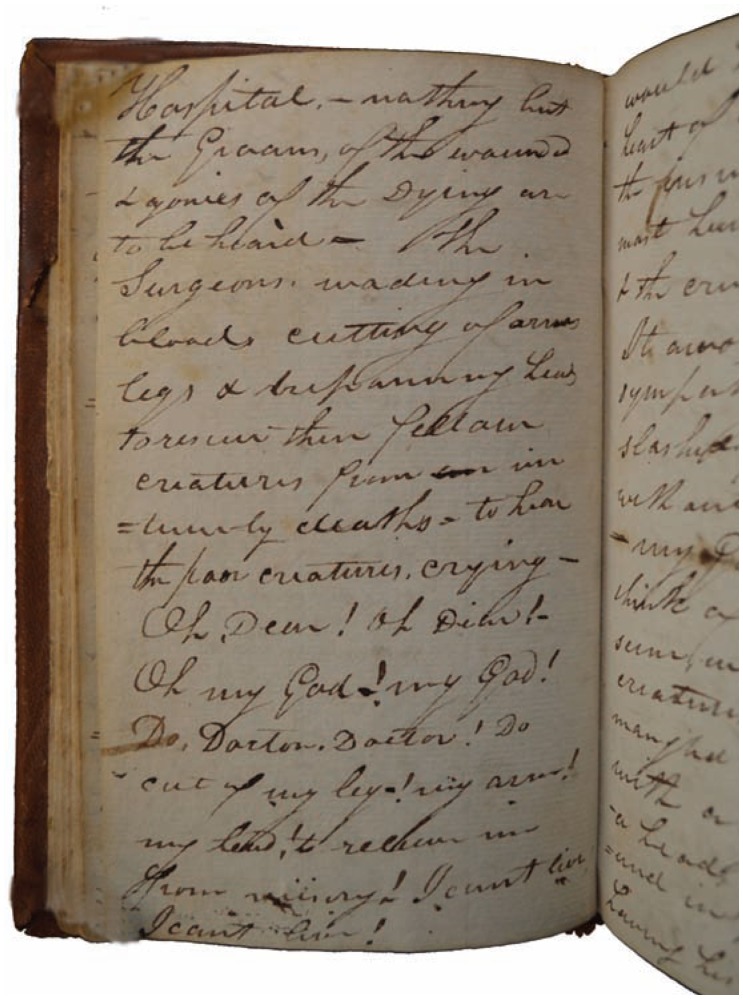 Hospital. – nothing but
the Groans, of the wound
& agonies of the Dying are
to be heard – The
Surgeons. wading in
bloods cutting of arms
legs & trepanning heads
to rescue their fellow
creatures from un
=timely deaths – to hear
the poor creatures. crying –
Oh, Dear! Oh Dear! –
Oh my God – ! my God!
Do, Doctor. Doctor! Do
cut of my leg – ! my arm!
my head! to relieve me
From misery! I cant live
I cant live!
would
heart of
the
most
& the
It
with
– my
think of
creatures
with
a head
having his